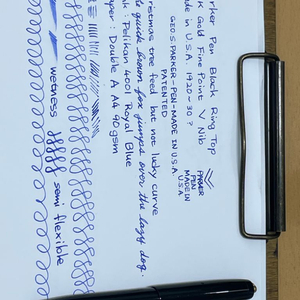 Parker Pen Black Ring Top
14K Gold Fine Point V Nib
Made in U.S.A. 1920-30?
PARKER
PEN
MADE IN
U.S.A
GEO.S. PARKER-PEN-MADE IN U.S.A
PATENTED
Christmas tree feed but not lucky curve
quick brown fox jumps over the lazy dog.
Ink: Pelikan 4001 Royal Blue
Paper: Double A A4 90gsm
wetness semi flexible